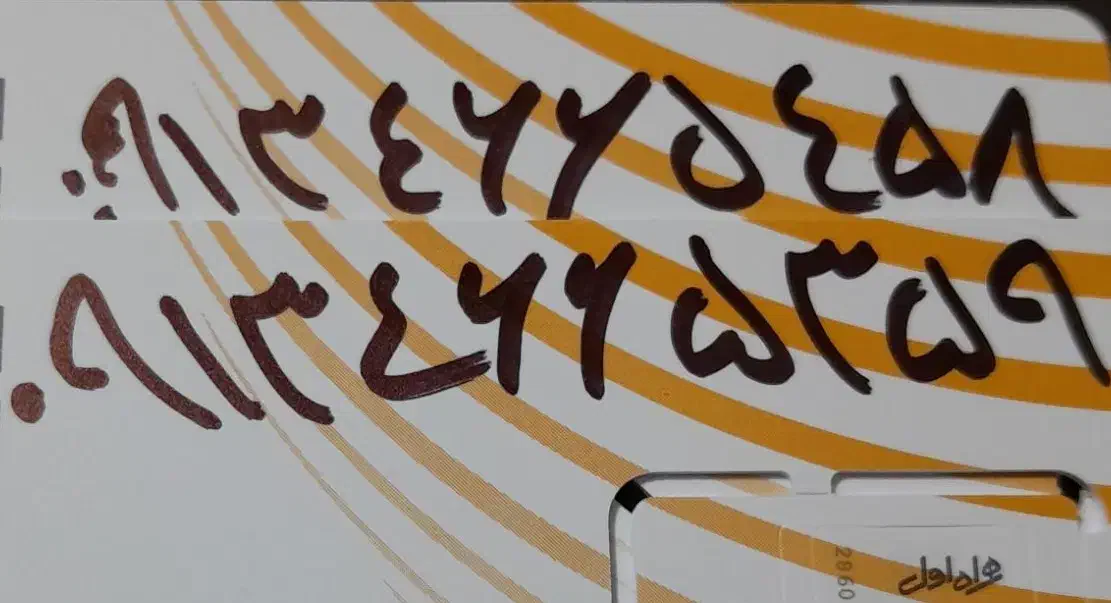 ۰۹۱۳۴۶۶۵۴۵۸
۰۹۱۳۴۶۶۵۳۵۹
2860
همراه اول